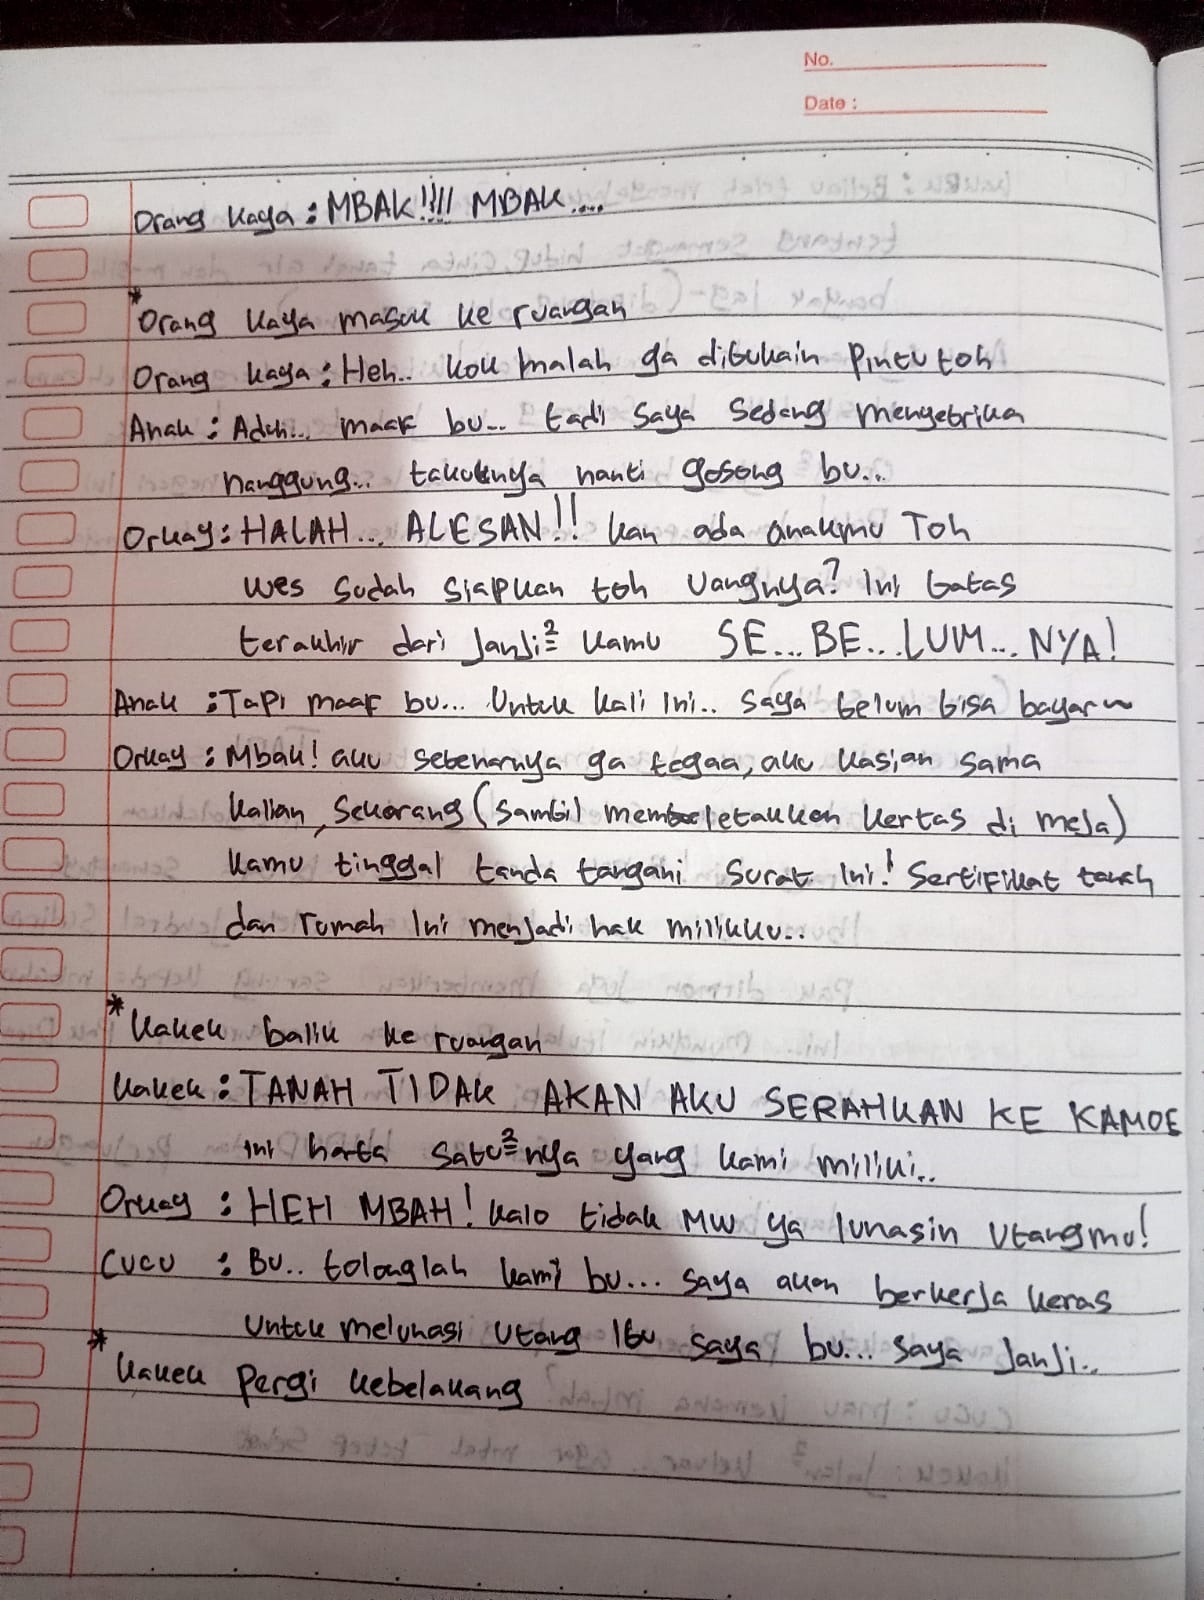 No.
Date :
Orang kaya : MBAK!!!! MBAK....
*Orang kaya masuk ke ruangan
Orang kaya : Heh.. kok malah ga dibukain pintu toh
Anak : Aduh... maaf bu... tadi saya sedang menyetrika
nanggung... takutnya nanti gosong bu...
Orkay : HALAH... ALESAN!! kan ada anakmu Toh
wes sudah siapkan toh uangnya? Ini batas
terakhir dari janji² kamu SE... BE... LUM... NYA!
Anak : Tapi maaf bu... Untuk kali ini.. saya belum bisa bayar~
Orkay : Mbak! aku sebenarnya ga tegaa, aku kasian sama
kalian, sekarang (sambil meletakkan kertas di meja)
kamu tinggal tanda tangani surat ini! Sertifikat tanah
dan rumah ini menjadi hak milikku..
*Kakek balik ke ruangan
Kakek : TANAH TIDAK AKAN AKU SERAHKAN KE KAMOE
ini harta satu²nya yang kami miliki..
Orkay : HEH MBAH! kalo tidak MW ya lunasin utangmu!
CUCU : Bu.. tolonglah kami bu... saya akan berkerja keras
untuk melunasi utang ibu saya bu... saya janji..
*Kakek pergi kebelakang